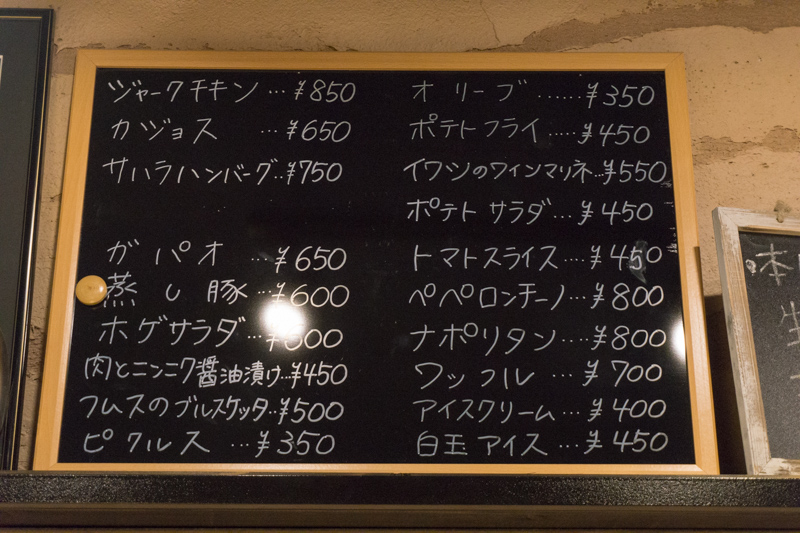 ジャークチキン…¥850
カジョス …¥650
サハラハンバーグ…¥750
ガパオ …¥650
蒸し豚…¥600
ホゲサラダ…
肉とニンニク醤油漬け…¥450
フムスのブルスケッタ…¥500
ピクルス …¥350
オリーブ……¥350
ポテトフライ……¥450
イワシのワインマリネ…¥550
ポテトサラダ…¥450
トマトスライス…¥450
ペペロンチーノ…¥800
ナポリタン…¥800
ワッフル…¥700
アイスクリーム…¥400
白玉アイス…¥450